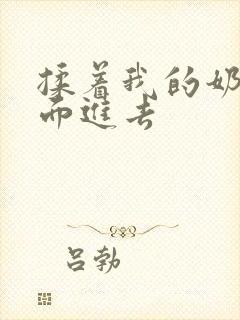 揉着我的奶
而進去
吕勃